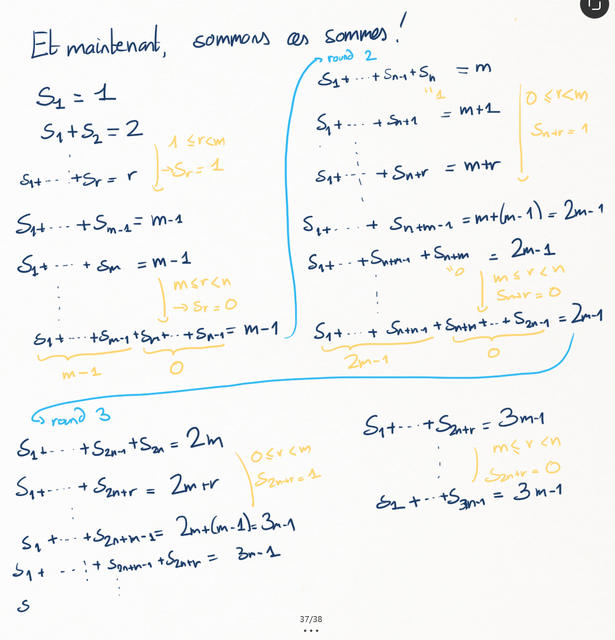 Et maintenant, sommons ces sommes !
S₁ = 1
S₁+S₂ = 2
S₁+···+Sr = r
1 ≤ r < m
→ Sr = 1
S₁+···+Sm-1 = m-1
S₁+···+Sm = m-1
m ≤ r < n
→ Sr = 0
S₁+···+Sm-1+Sm+···+Sn-1 = m-1
m-1
0
round 2
S₁+···+Sn-1+Sn = m
"1
S₁+···+Sn+1 = m+1
0 ≤ r < m
Sn+r = 1
S₁+···+Sn+r = m+r
S₁+···+Sn+m-1 = m+(m-1) = 2m-1
S₁+···+Sn+m-1+Sn+m = 2m-1
"0
m ≤ r < n
Sn+r = 0
S₁+···+Sn+m-1+Sn+m+···+S2n-1 = 2m-1
2m-1
0
round 3
S₁+···+S2n-1+S2n = 2m
S₁+···+S2n+r = 2m+r
0 ≤ r < m
S2n+r = 1
S₁+···+S2n+m-1 = 2m+(m-1) = 3m-1
S₁+···+S2n+m-1+S2n+r = 3m-1
S
S₁+···+S2n+r = 3m-1
m ≤ r < n
S2n+r = 0
S₁+···+S3n-1 = 3m-1
37/38